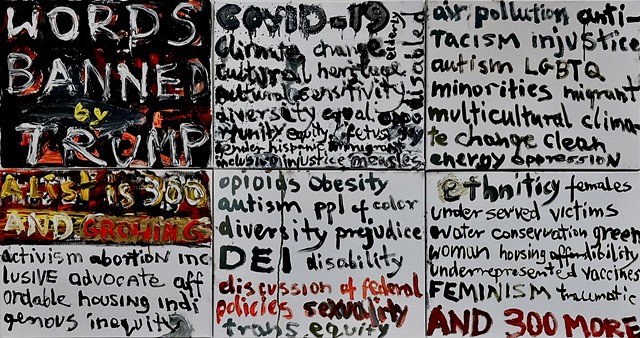 WORDS
BANNED
by
TRUMP
COVID-19
climate change
cultural heritage
cultural sensitivity
diversity equal oppo
rtunity equity fetus gay
gender hispanic immigrant
inclusive injustice measles
elderly
disabled
air pollution anti-
racism injustice
autism LGBTQ
minorities migrant
multicultural clima
te change clean
energy oppression
A List is 300
AND GROWING
activism abortion inc
LUSIVE advocate aff
ordable housing indi
genous inequity
opioids obesity
autism ppl of color
diversity prejudice
DEI disability
discussion of federal
policies sexuality
trans equity
ethnitisy females
under served victims
water conservation green
woman housing affordibility
underrepresented vaccines
FEMINISM traumatic
AND 300 MORE